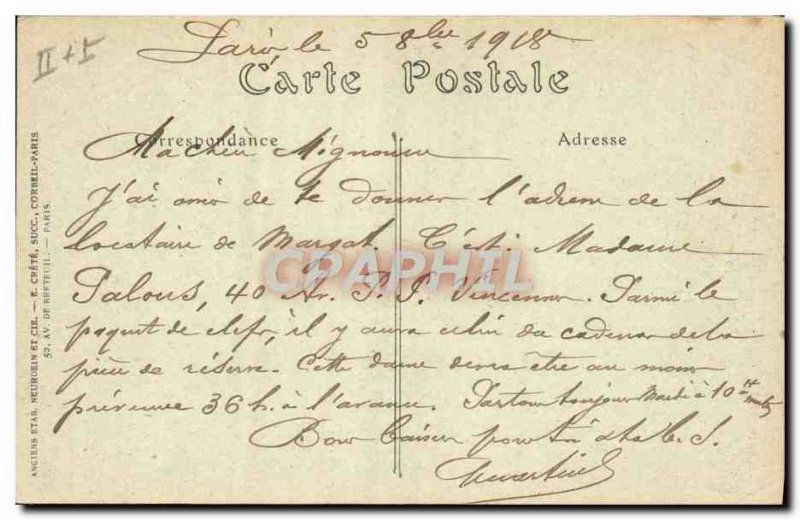 Paris le 5 8bre 1918
Carte Postale
Correspondance
Adresse
Ma chère Mignonne
J'ai omis de te donner l'adresse de la
locataire de Margat. C'est: Madame
Palous, 40 Av. P. P. Vincennes. Parmi le
paquet de clefs, il y aura celui du cadenas de la
pièce de réserve. Cette dame devra être au moins
prévenue 36 h. à l'avance. Partons toujours Mardi à 10 H
Bons baisers pour
II + I
ANCIENS ETAB. NEURDEIN ET CIE. — E. CRÉTÉ, SUCC., CORBEIL-PARIS
52, AV. DE BRETEUIL. — PARIS
CPAPHIL